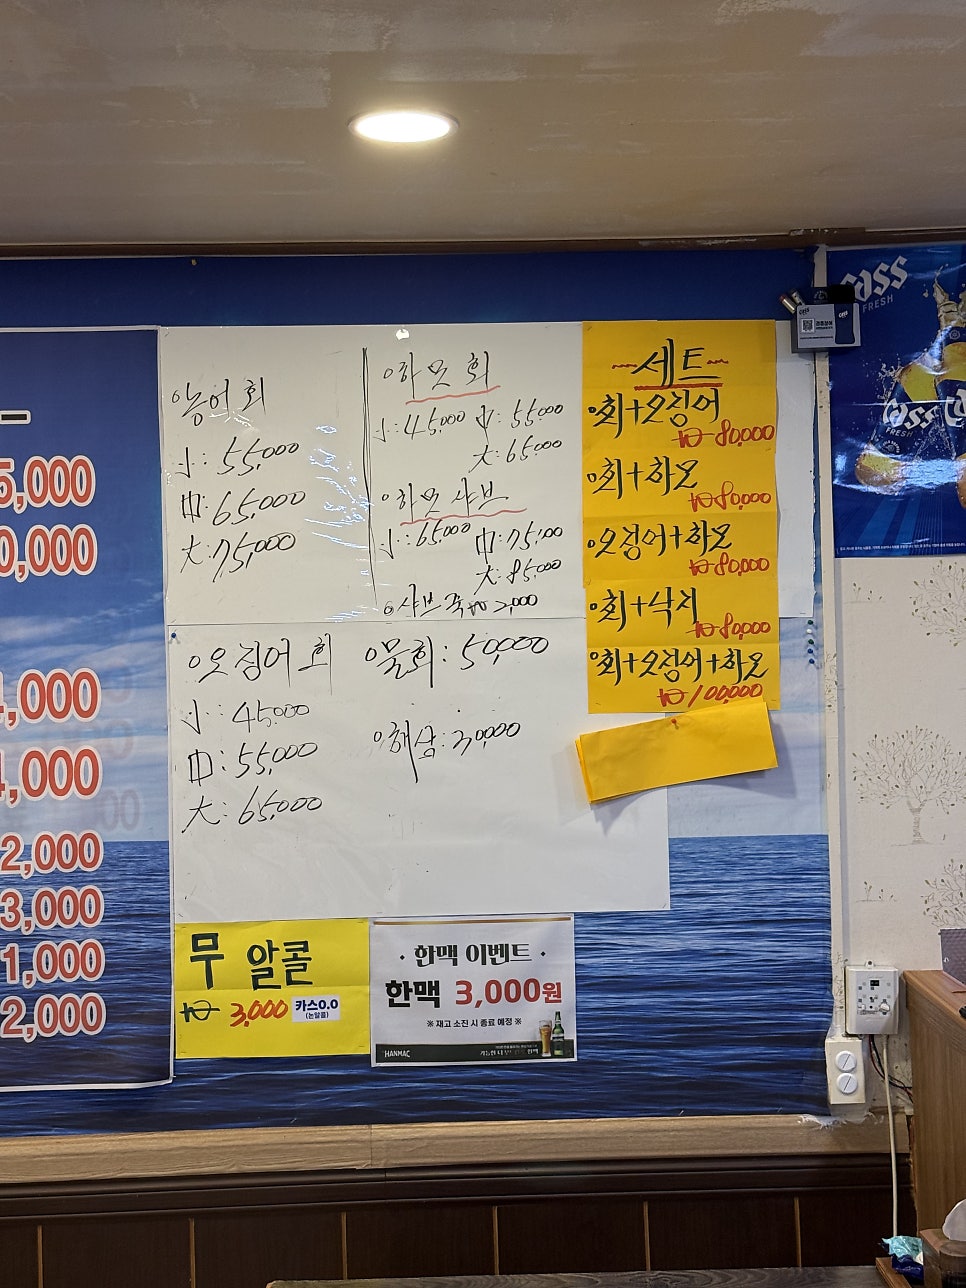 5,000
0,000
4,000
4,000
2,000
3,000
1,000
2,000
농어회
小: 55,000
中: 65,000
大: 75,000
하모회
小: 45,000 中: 55,000
大: 65,000
하모샤브
小: 65,000 中: 75,000
大: 85,000
샤브죽 ₩ 2,000
오징어회
小: 45,000
中: 55,000
大: 65,000
물회: 50,000
해삼: 30,000
세트
회+오징어
₩ 80,000
회+하모
₩ 80,000
오징어+하모
₩ 80,000
회+낙지
₩ 80,000
회+오징어+하모
₩ 100,000
무 알콜
₩ 3,000 카스0.0
(논알콜)
· 한맥 이벤트 ·
한맥 3,000원
※ 재고 소진 시 종료 예정 ※
HANMAC
Cass
FRESH
Cass
FRESH